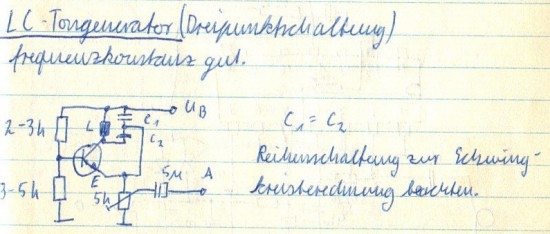 LC-Tongenerator (Dreipunktschaltung)
frequenzkonstanz gut.
UB
L C1
C2
2-3k
C1 = C2
Reihenschaltung zur Schwing-
kreisberechnung beachten.
E 5µ A
3-5k
5k